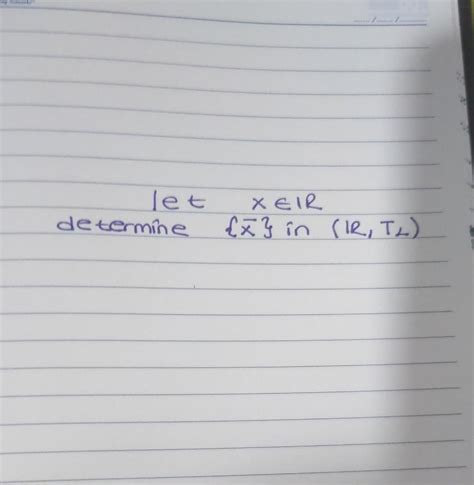 let x ∈ ℝ
determine {x̄} in (ℝ, T_L)